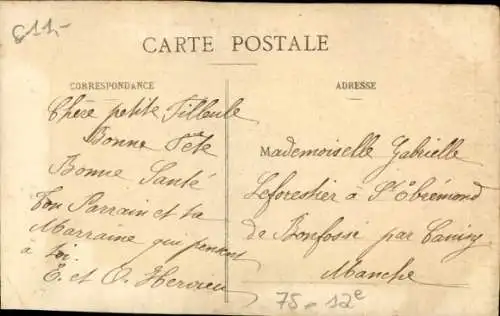 811,-
CARTE POSTALE
CORRESPONDANCE
Chère petite Filleule
Bonne Fête
Bonne Santé
Ton Parrain et ta
Marraine qui pensent
à toi.
E. et O. Hervieu
ADRESSE
Mademoiselle Gabrielle
Leforestier à St Ebrémond
de Bonfossé par Canisy
Manche
75 - 12e